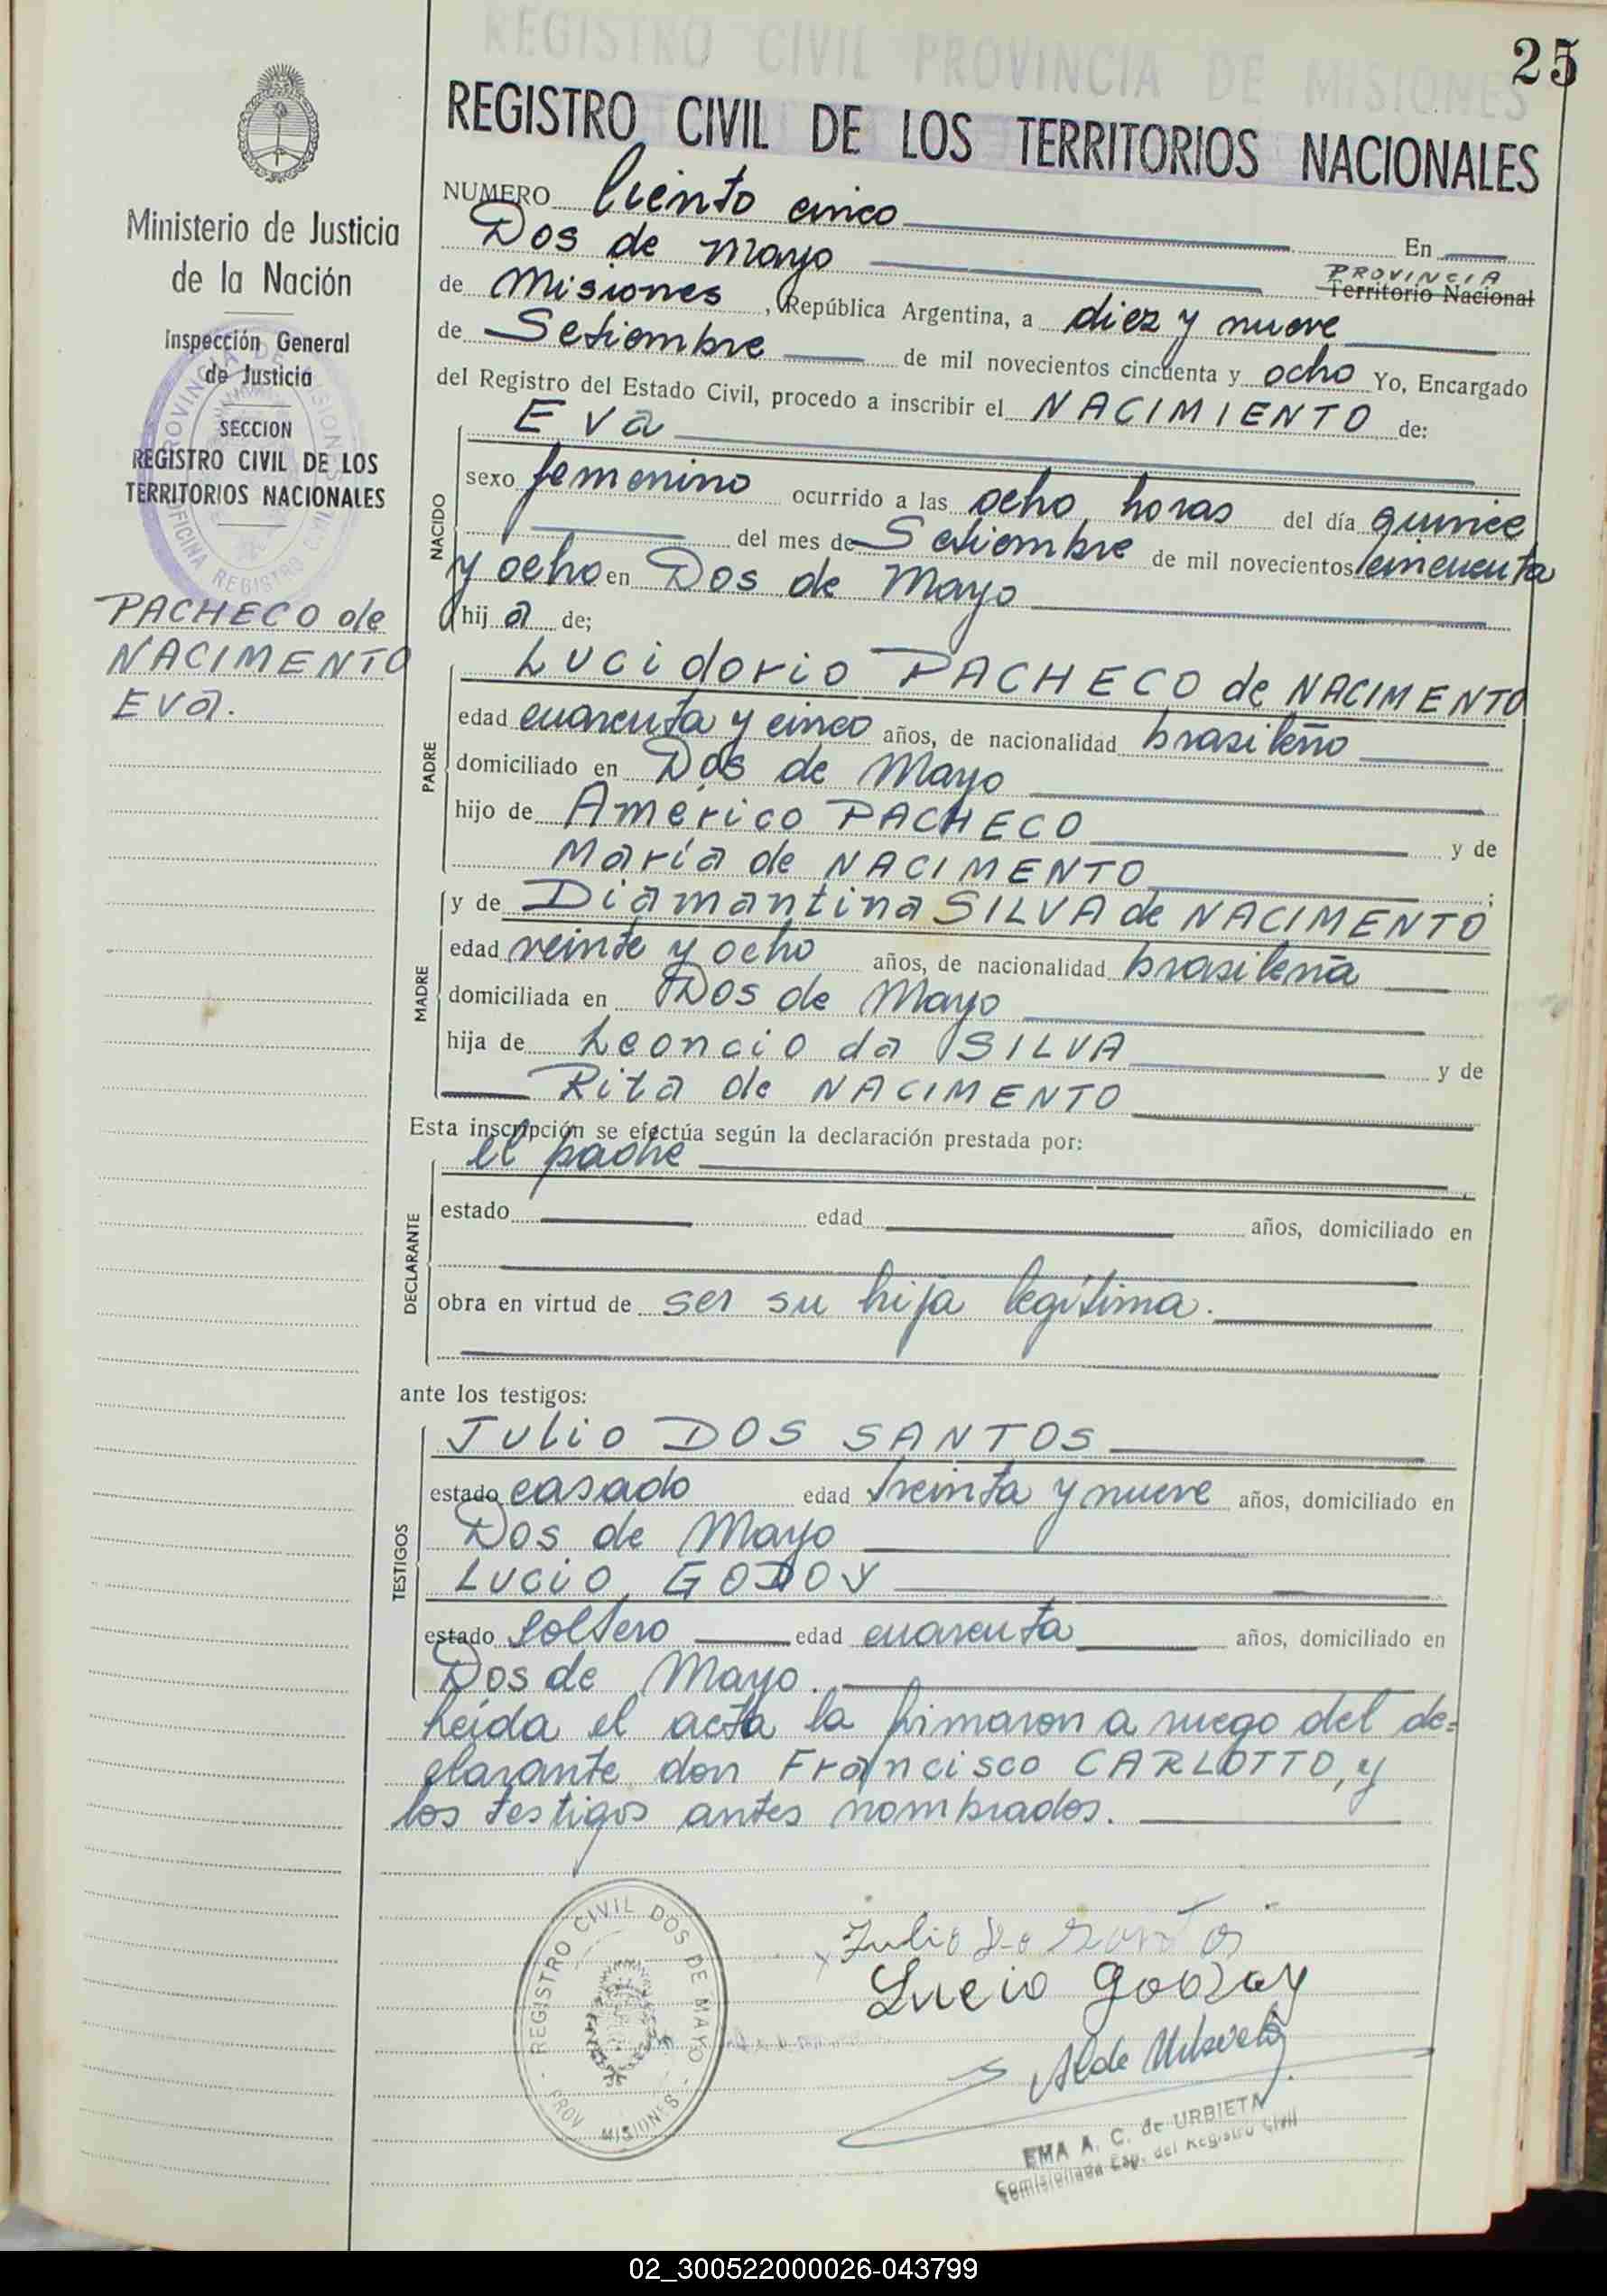 REGISTRO CIVIL PROVINCIA DE MISIONES
25
REGISTRO CIVIL DE LOS TERRITORIOS NACIONALES
Ministerio de Justicia
de la Nación
Inspección General
de Justicia
SECCION
REGISTRO CIVIL DE LOS
TERRITORIOS NACIONALES
PROVINCIA DE MISIONES
OFICINA REGISTRO CIVIL
PACHECO de
NACIMENTO
Eva.
NUMERO Ciento cinco En
Dos de Mayo PROVINCIA
Territorio Nacional
de Misiones, República Argentina, a diez y nueve
de Setiembre de mil novecientos cincuenta y ocho Yo, Encargado
del Registro del Estado Civil, procedo a inscribir el NACIMIENTO de:
Eva
NACIDO
sexo femenino ocurrido a las ocho horas del día quince
del mes de Setiembre de mil novecientos cincuenta
y ocho en Dos de Mayo
hij a de;
PADRE
Lucidorio PACHECO de NACIMENTO
edad cuarenta y cinco años, de nacionalidad brasileño
domiciliado en Dos de Mayo
hijo de Américo PACHECO y de
María de NACIMENTO ;
MADRE
y de Diamantina SILVA de NACIMENTO
edad veinte y ocho años, de nacionalidad brasileña
domiciliada en Dos de Mayo
hija de Leoncio da SILVA y de
Rita de NACIMENTO
Esta inscripción se efectúa según la declaración prestada por:
DECLARANTE
el padre
estado edad años, domiciliado en
obra en virtud de ser su hija legítima.
ante los testigos:
TESTIGOS
Julio DOS SANTOS
estado casado edad treinta y nueve años, domiciliado en
Dos de Mayo
Lucio GODOY
estado soltero edad cuarenta años, domiciliado en
Dos de Mayo.
Leída el acta la firmaron a ruego del de=
clarante don Francisco CARLOTTO, y
los testigos antes nombrados.
REGISTRO CIVIL DOS DE MAYO
PROV. MISIONES
Julio Do Santos
Lucio Godoy
EMA A. C. de URBIETA
Comisionada Esp. del Registro Civil
02_300522000026-043799